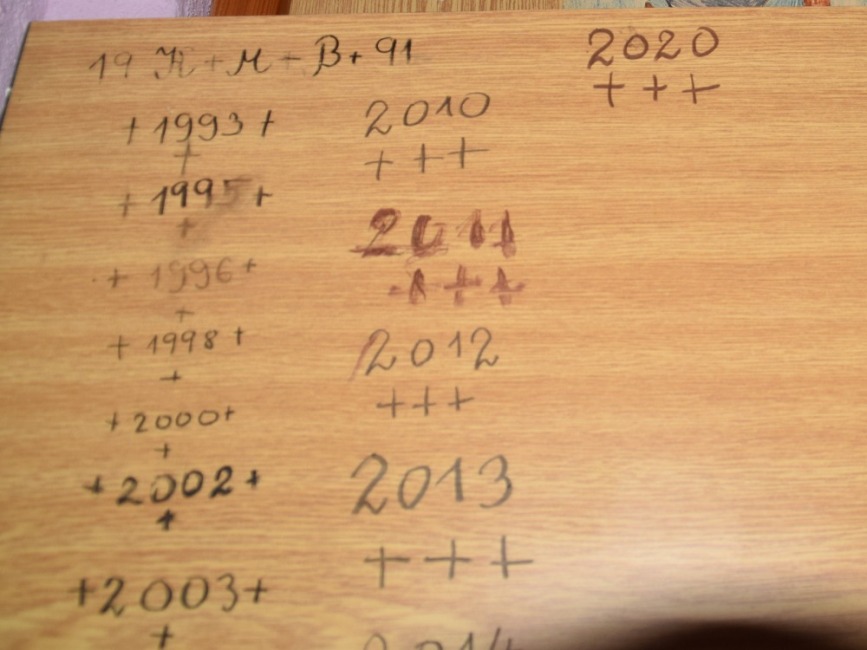 19 K+M+B+91
+1993+
+
+1995+
+
+1996+
+
+1998+
+
+2000+
+
+2002+
+
+2003+
+
2010
+++
2011
+++
2012
+++
2013
+++
2014
2020
+++